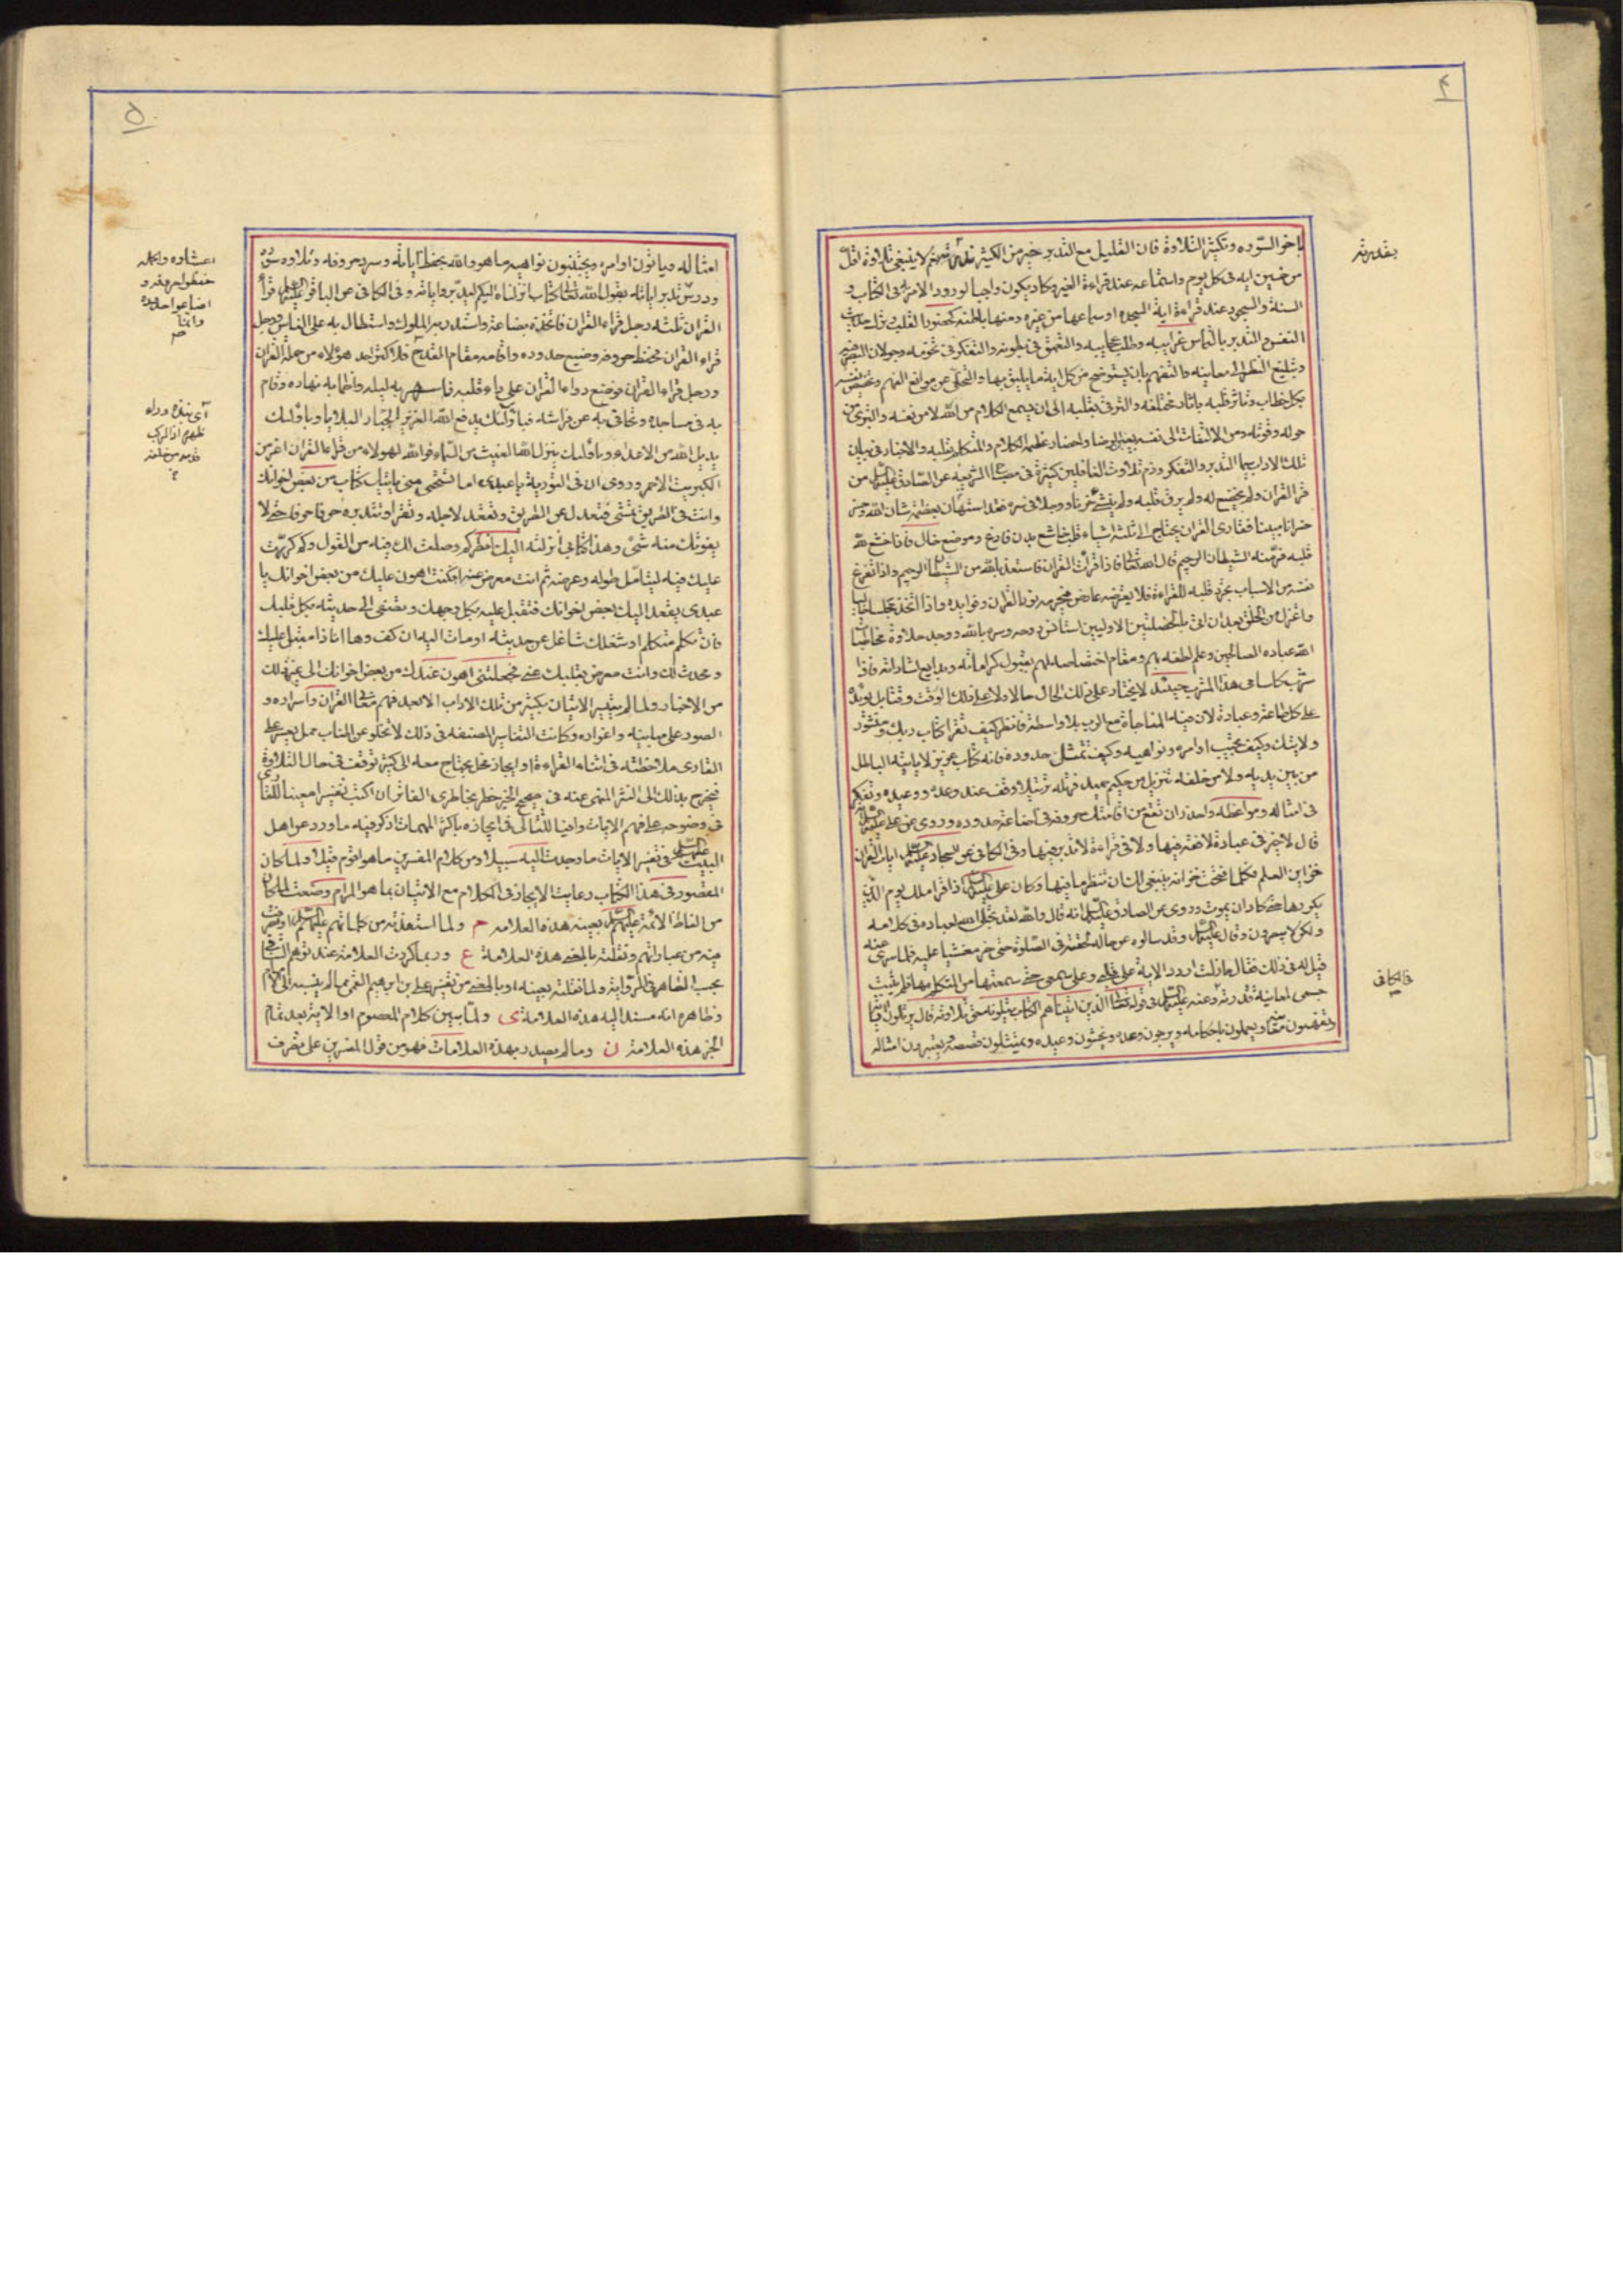 ۴
باخر السوره وتكثير التلاوة فان القليل مع التدبر خير من الكثير لا ينبغى تلاوة اقل
من خمسين ايه فى كل يوم واستماعه عند قراءة الغير وكاد يكون واجبا لورود الامر به فى الكتاب و
السنة والسجود عند قراءة اية السجدة او سماعها من غيره ومنها باطنه كحضور القلب وترك حديث
النفس والتدبر بالتماس غرايبه وطلب عجايبه والتعمق فى بطونه والتفكر فى تخومه وجولان البصر فيه
وتبليغ النظر الى معاينه والتفهم بان يستوضح من كل اية ما يليق بها والتخلى عن موانع الفهم وتخصيص نفسه
بكل خطاب وتاثر قلبه باثار مختلفه والترقى بقلبه الى ان يسمع الكلام من الله لا من نفسه والتبرى من
حوله وقوته ومن الالتفات الى نفسه بعين الرضا واحضار عظمه الكلام والمتكلم بقلبه والاخبار فى بيان
تلك الاداب سيما التدبر والتفكر وذم تلاوت الغافلين كثيرة فى مصباح الشريعه عن الصادق عليه السلام من
قرا القران ولم يخضع له ولم يرق قلبه ولم ينشئ حزنا ووجلا فى سره فقد استهان بعظمة شان الله وخسر
خسرانا مبينا فقارى القران يحتاج الى ثلثة اشياء قلب خاشع بدن فارغ وموضع خال فاذا خشع لله
قلبه فر منه الشيطان الرجيم قال الله تعالى فاذا قرات القران فاستعذ بالله من الشيطان الرجيم واذا تفرغ
نفسه من الاسباب تجرد قلبه للقراءة فلا يعترضه عارض فيحرمه نور القران وفوايده واذا اتخذ مجلسا خاليا
واعتزل من الخلق بعد ان اتى بالخصلتين الاوليين استانس روحه وسره بالله ووجد حلاوة مخاطبات
الله عباده الصالحين وعلم لطفه بهم ومقام اختصاصه لهم بقبول كراماته وبدايع اشاراته فاذا
شرب كاسا من هذا المشرب حينئذ لا يختار على ذلك الحال حالا ولا على ذلك الوقت وقتا بل يوثره
على كل طاعة وعبادة لان فيه المناجاة مع الرب بلا واسطة فانظر كيف تقرا كتاب ربك ومنشور
ولايتك وكيف تجيب اوامره ونواهيه وكيف تمتثل حدوده فانه كتاب عزيز لا ياتيه الباطل
من بين يديه ولا من خلفه تنزيل من حكيم حميد فرتله ترتيلا وقف عند وعده ووعيده وتفكر
فى امثاله ومواعظه واحذر ان تقع من اقامتك حروفه فى اضاعة حدوده وروى عن على عليه السلام
قال لا خير فى عبادة لا فقه فيها ولا فى قراءة لا تدبر فيها وفى الكافى عن السجاد عليه السلام ايات القران
خزاين العلم فكلما فتحت خزانة ينبغى لك ان تنظر ما فيها وكان على عليه السلام اذا قرا ملك يوم الدين
يكررها حتى كاد ان يموت وروى عن الصادق عليه السلام انه قال والله لقد تجلى الله لعباده فى كلامه
ولكن لا يبصرون وقال عليه السلام وقد سالوه عن حالة لحقته فى الصلوة حتى خر مغشيا عليه فلما سرى عنه
قيل له فى ذلك فقال ما زلت اردد الاية على قلبى وعلى سمعى حتى سمعتها من المتكلم بها فلم يثبت
جسمى لمعاينة قدرته وعنه عليه السلام فى قوله تعالى الذين اتيناهم الكتاب يتلونه حق تلاوته قال يرتلون اياته
ويتفهمون معانيه ويعملون باحكامه ويرجون وعده ويخشون وعيده ويتمثلون قصصه ويعتبرون امثاله
فى الكافى
۵
امثاله وياتون اوامره ويجتنبون نواهيه ما هو والله بحفظ آياته وسرد حروفه وتلاوه سوره
ودرس تدبر اياته يقول الله تعالى كتاب انزلناه اليكم ليدبروا اياته وفى الكافى عن الباقر عليه السلام قراء
القران ثلثه رجل قراء القران فاتخذه بضاعة واستدر به الملوك واستطال به على الناس ورجل
قراء القران فحفظ حروفه وضيع حدوده واقامه مقام القدح فلا اكثر الله هؤلاء من حملة القران
ورجل قراء القران فوضع دواء القران على داء قلبه فاسهر به ليله واظما به نهاره وقام
به فى مساجده وتجافى به عن فراشه فباولئك يدفع الله العزيز الجبار البلايا وباولئك
يديل الله من الاعداء وباولئك ينزل الله الغيث من السماء فوالله لهولاء من قراء القران اعز من
الكبريت الاحمر وروى ان فى التورية يا عبدى اما تستحيى منى ياتيك كتاب من بعض اخوانك
وانت فى الطريق تمشى فتعدل عن الطريق وتقعد لاجله وتقرا وتتدبره حرفا حرفا حتى لا
يفوتك منه شىء وهذا كتابى انزلته اليك انظر كم وصلت لك فيه من القول وكم كررت
عليك فيه ليتامل طوله وعرضه ثم انت معرض عنه افكنت اهون عليك من بعض اخوانك يا
عبدى يقعد اليك بعض اخوانك فتقبل عليه بكل وجهك وتصغى الى حديثه بكل قلبك
فان تكلم متكلم او شغلك شاغل عن حديثه اومات اليه ان كف وها انا ذا مقبل عليك
ومحدث لك وانت معرض بقلبك عنى فجعلتنى اهون عندك من بعض اخوانك الى غير ذلك
من الاخبار ولما لم يتيسر الاتيان بكثير من تلك الاداب الا بعد فهم معانى القران واسراره و
القارى ملاحظته فى اثناء القراءة او ايجاز مخل يحتاج معه الى كثرة توقف فى حال التلاوة
البيت عليهم السلام فى تفسير الايات ما وجدت اليه سبيلا ومن كلام المفسرين ما هو اقوم قيلا ولما كان
المقصود فى هذا الكتاب رعايت الايجاز فى الكلام مع الاتيان بما هو المرام وضعت لما كان
من الفاظ الائمة عليهم السلام بعينه هذه العلامه م ولما استفدته من كلماتهم عليهم السلام او تصرفت
فيه من عباراتهم ونقلته بالمعنى هذه العلامة ع وربما كررت العلامة عند توهم التنافى
بحسب الظاهر فى الرواية ولما نقلته بعينه او بالمعنى من تفسير على بن ابرهيم القمى مما لم ينسبه الى الامام
وظاهره انه مسند اليه هذه العلامة ى ولما بين كلام المعصوم او الاية بعد تمام
الخبر هذه العلامة ن وما لم يصدر بهذه العلامات فهو من قول المفسرين على تصرف